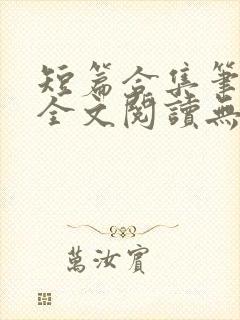 短篇合集筆
全文閱讀無
萬汝賓